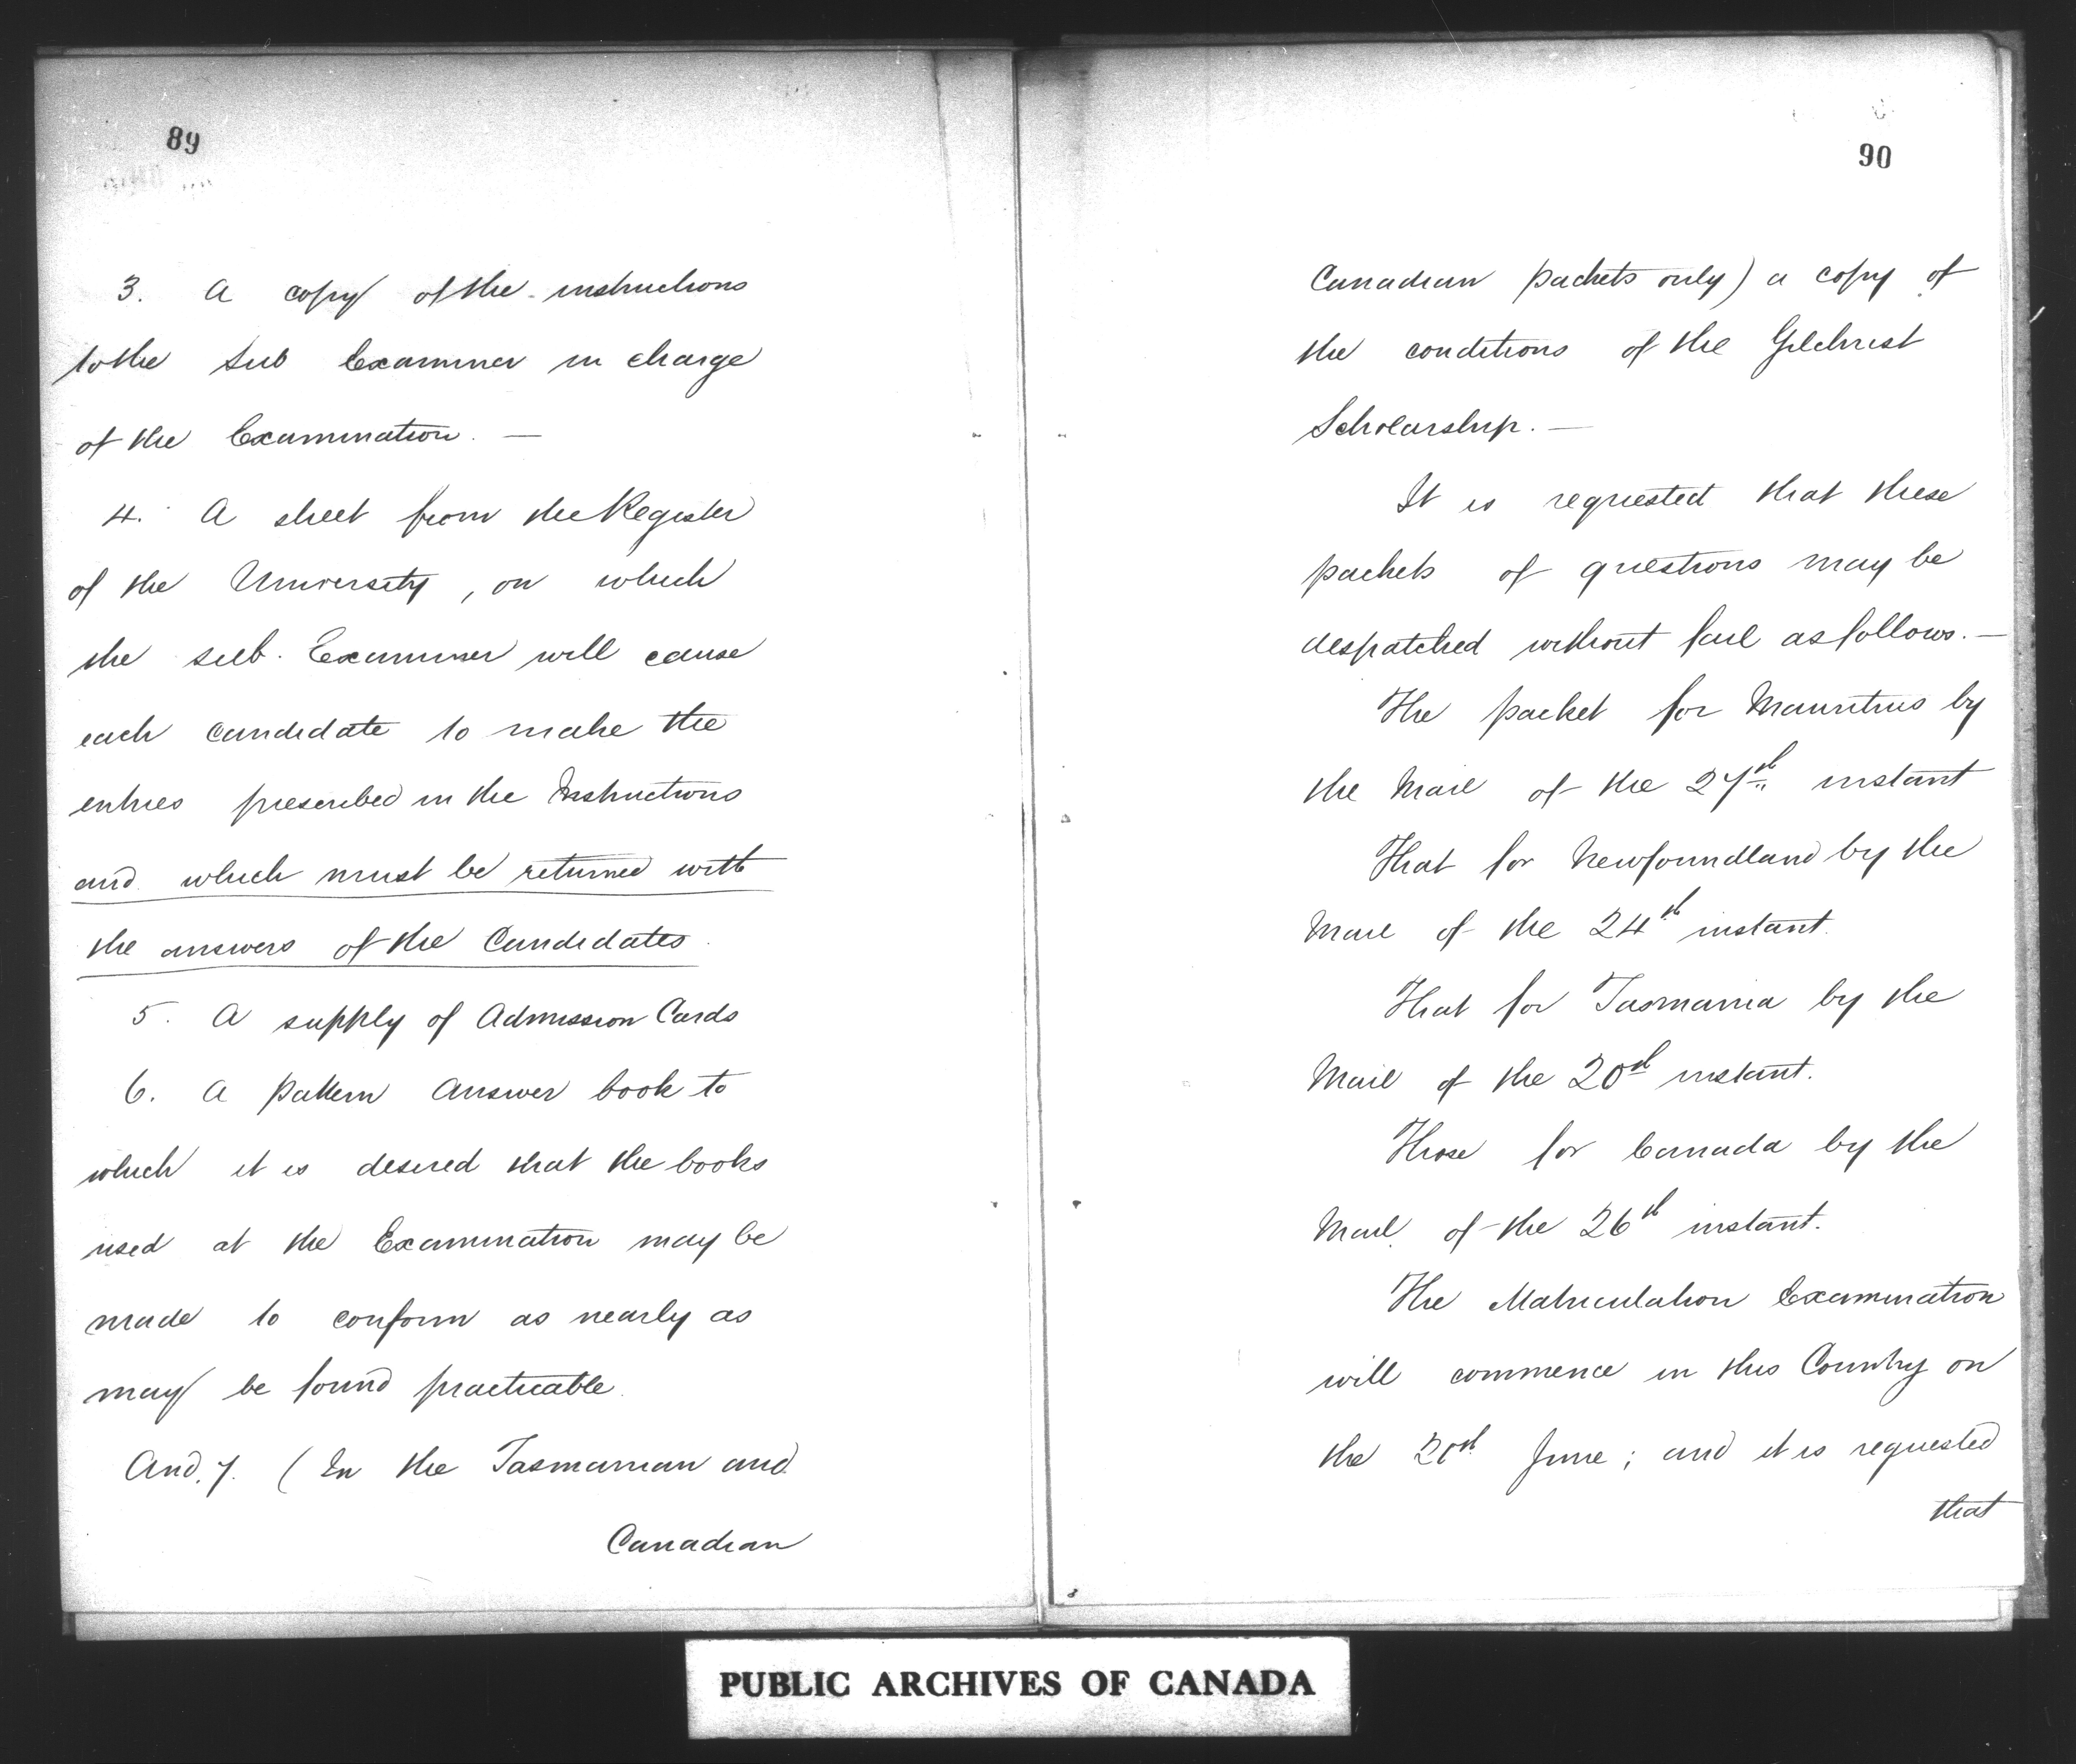 89
3. A copy of the instructions
to the Sub Examiner in charge
of the Examination. —
4. A sheet from the Register
of the University, on which
the sub. Examiner will cause
each candidate to make the
entries prescribed in the Instructions
and which must be returned with
the answers of the Candidates.
5. A supply of Admission Cards
6. A pattern answer book to
which it is desired that the books
used at the Examination may be
made to conform as nearly as
may be found practicable.
And. 7. (In the Tasmanian and
Canadian
90
Canadian packets only) a copy of
the conditions of the Gilchrist
Scholarship. —
It is requested that these
packets of questions may be
despatched without fail as follows. —
The packet for Mauritius by
the Mail of the 27th instant
That for Newfoundland by the
Mail of the 24th instant.
That for Tasmania by the
Mail of the 20th instant.
Those for Canada by the
Mail of the 26th instant.
The Matriculation Examination
will commence in this Country on
the June; and it is requested
that
PUBLIC ARCHIVES OF CANADA